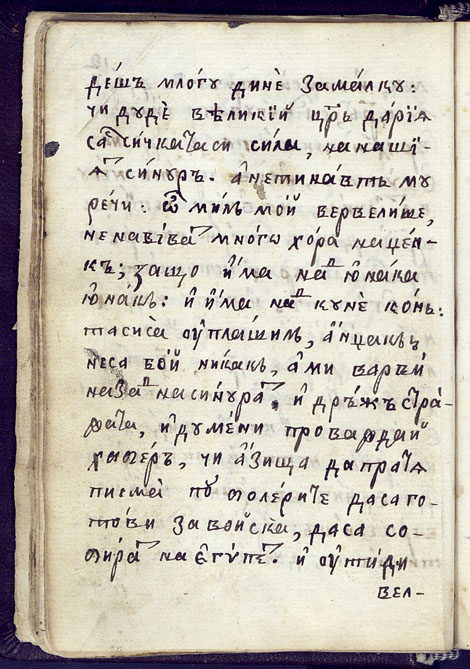 де́шъ мло́гу динѐ зама́лку:
чи дудѐ вѣли́кїй цр҃ь да́рїѧ
саⷭ҇ си́чката си си́ла, на на́шї-
ѧⷮ си́нуръ. а҆ не тина́втъ му
ре́чи: ѿ ми́лъ мо́й верве́лише,
не наві́ваⷮ мно́гѡ хо́ра на ще́н-
къ; защо и҆́ма наⷣ ю҆на́ка
ю҆на́къ: и҆ и҆́ма наⷣ кунѐ ко́нь:
та сиса ѹ҆пла́шилъ, а҆́нцакъ
неса бо́й ни́какъ, а҆́ми варви́
назаⷣ на си́нураⷮ, и҆ дръ́жъ стра-
жа́та, и҆ ду ме́ни прова́ждай
хабе́ръ, чи а҆́зища да пра́тѧ
писма̀ пѡ боле́рите да са го-
то́ви за во́йска, да са со-
би́раⷮ на є҆гѵ́пеⷮ. и҆ ѹ҆ти́ди
вел-